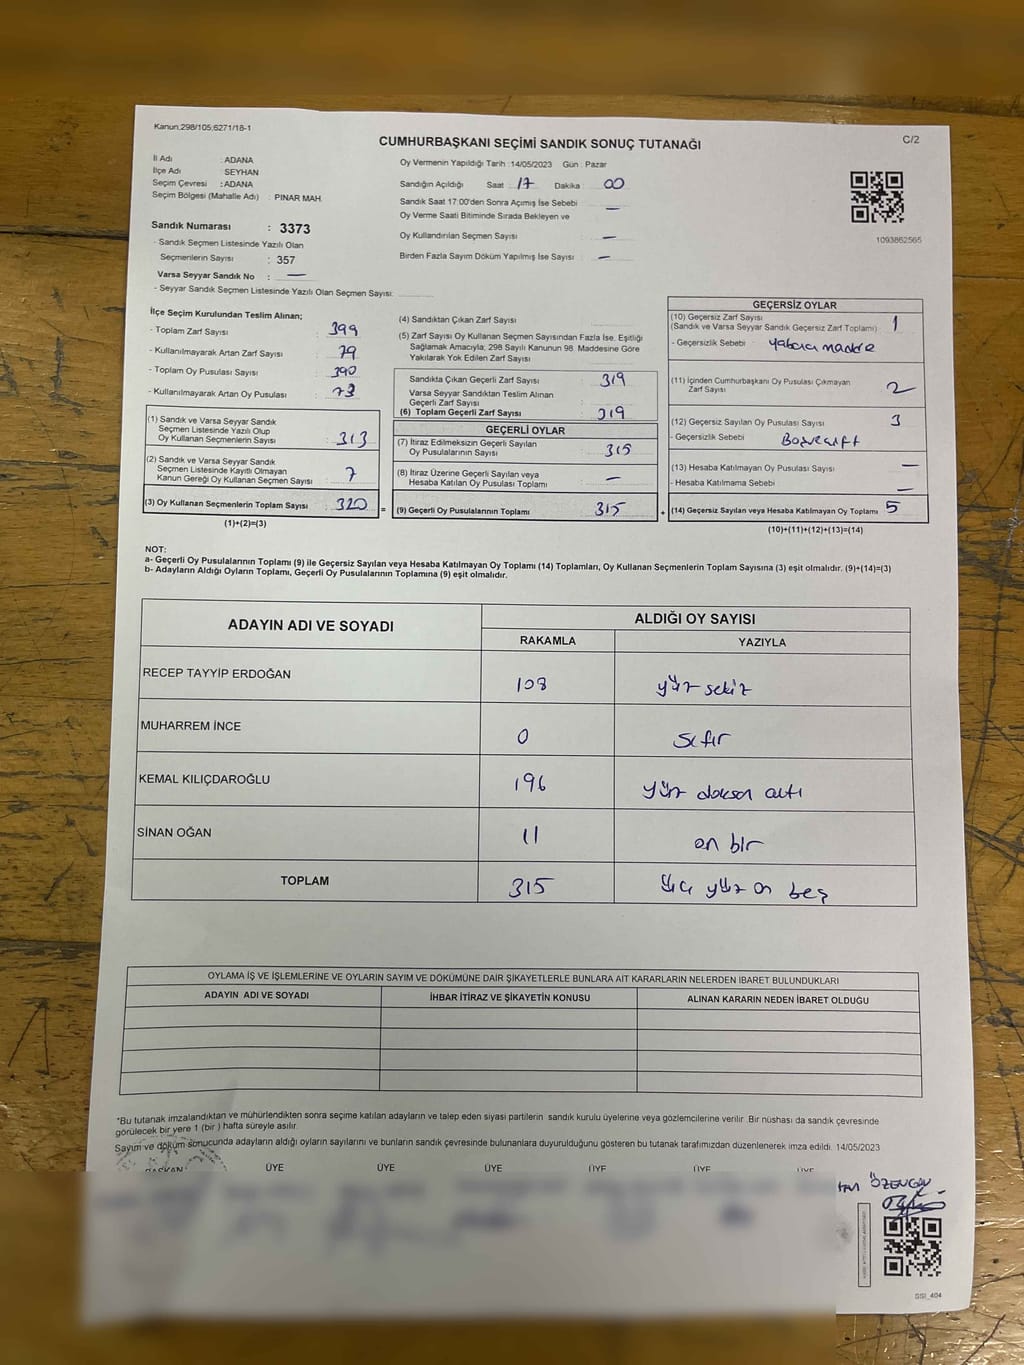 Kanun:298/105;6271/18-1
C/2
CUMHURBAŞKANI SEÇİMİ SANDIK SONUÇ TUTANAĞI
İl Adı : ADANA
İlçe Adı : SEYHAN
Seçim Çevresi : ADANA
Seçim Bölgesi (Mahalle Adı) : PINAR MAH.
Sandık Numarası : 3373
- Sandık Seçmen Listesinde Yazılı Olan
Seçmenlerin Sayısı : 357
Varsa Seyyar Sandık No : —
- Seyyar Sandık Seçmen Listesinde Yazılı Olan Seçmen Sayısı:
Oy Vermenin Yapıldığı Tarih :14/05/2023 Gün : Pazar
Sandığın Açıldığı Saat : 17 Dakika : 00
Sandık Saat 17:00'den Sonra Açımış İse Sebebi : —
Oy Verme Saati Bitiminde Sırada Bekleyen ve
Oy Kullandırılan Seçmen Sayısı : —
Birden Fazla Sayım Döküm Yapılmış İse Sayısı : —
1093862565
İlçe Seçim Kurulundan Teslim Alınan;
- Toplam Zarf Sayısı : 399
- Kullanılmayarak Artan Zarf Sayısı : 79
- Toplam Oy Pusulası Sayısı : 390
- Kullanılmayarak Artan Oy Pusulası : 73
(1) Sandık ve Varsa Seyyar Sandık
Seçmen Listesinde Yazılı Olup
Oy Kullanan Seçmenlerin Sayısı : 313
(2) Sandık ve Varsa Seyyar Sandık
Seçmen Listesinde Kayıtlı Olmayan
Kanun Gereği Oy Kullanan Seçmen Sayısı : 7
(3) Oy Kullanan Seçmenlerin Toplam Sayısı : 320
(1)+(2)=(3)
(4) Sandıktan Çıkan Zarf Sayısı
(5) Zarf Sayısı Oy Kullanan Seçmen Sayısından Fazla İse, Eşitliği
Sağlamak Amacıyla; 298 Sayılı Kanunun 98. Maddesine Göre
Yakılarak Yok Edilen Zarf Sayısı
Sandıkta Çıkan Geçerli Zarf Sayısı : 319
Varsa Seyyar Sandıktan Teslim Alınan
Geçerli Zarf Sayısı :
(6) Toplam Geçerli Zarf Sayısı : 319
GEÇERLİ OYLAR
(7) İtiraz Edilmeksizin Geçerli Sayılan
Oy Pusulalarının Sayısı : 315
(8) İtiraz Üzerine Geçerli Sayılan veya
Hesaba Katılan Oy Pusulası Toplamı : —
= (9) Geçerli Oy Pusulalarının Toplamı : 315 +
GEÇERSİZ OYLAR
(10) Geçersiz Zarf Sayısı
(Sandık ve Varsa Seyyar Sandık Geçersiz Zarf Toplamı) : 1
- Geçersizlik Sebebi : Yabancı madde
(11) İçinden Cumhurbaşkanı Oy Pusulası Çıkmayan
Zarf Sayısı : 2
(12) Geçersiz Sayılan Oy Pusulası Sayısı : 3
- Geçersizlik Sebebi :
(13) Hesaba Katılmayan Oy Pusulası Sayısı : —
- Hesaba Katılmama Sebebi : —
(14) Geçersiz Sayılan veya Hesaba Katılmayan Oy Toplamı : 5
(10)+(11)+(12)+(13)=(14)
NOT:
a- Geçerli Oy Pusulalarının Toplamı (9) ile Geçersiz Sayılan veya Hesaba Katılmayan Oy Toplamı (14) Toplamları, Oy Kullanan Seçmenlerin Toplam Sayısına (3) eşit olmalıdır. (9)+(14)=(3)
b- Adayların Aldığı Oyların Toplamı, Geçerli Oy Pusulalarının Toplamına (9) eşit olmalıdır.
ADAYIN ADI VE SOYADI
ALDIĞI OY SAYISI
RAKAMLA YAZIYLA
RECEP TAYYİP ERDOĞAN 108 yüz sekiz
MUHARREM İNCE 0 Sıfır
KEMAL KILIÇDAROĞLU 196 Yüz doksan altı
SİNAN OĞAN 11 on bir
TOPLAM 315 Üç yüz on beş
OYLAMA İŞ VE İŞLEMLERİNE VE OYLARIN SAYIM VE DÖKÜMÜNE DAİR ŞİKAYETLERLE BUNLARA AİT KARARLARIN NELERDEN İBARET BULUNDUKLARI
ADAYIN ADI VE SOYADI İHBAR İTİRAZ VE ŞİKAYETİN KONUSU ALINAN KARARIN NEDEN İBARET OLDUĞU
*Bu tutanak imzalandıktan ve mühürlendikten sonra seçime katılan adayların ve talep eden siyasi partilerin sandık kurulu üyelerine veya gözlemcilerine verilir .Bir nüshası da sandık çevresinde
görülecek bir yere 1 (bir ) hafta süreyle asılır.
Sayım ve döküm sonucunda adayların aldığı oyların sayılarını ve bunların sandık çevresinde bulunanlara duyurulduğunu gösteren bu tutanak tarafımızdan düzenlenerek imza edildi. 14/05/2023
BAŞKAN ÜYE ÜYE ÜYE ÜYE ÜYE ÜYE
ÖZENGİN
SSI_404